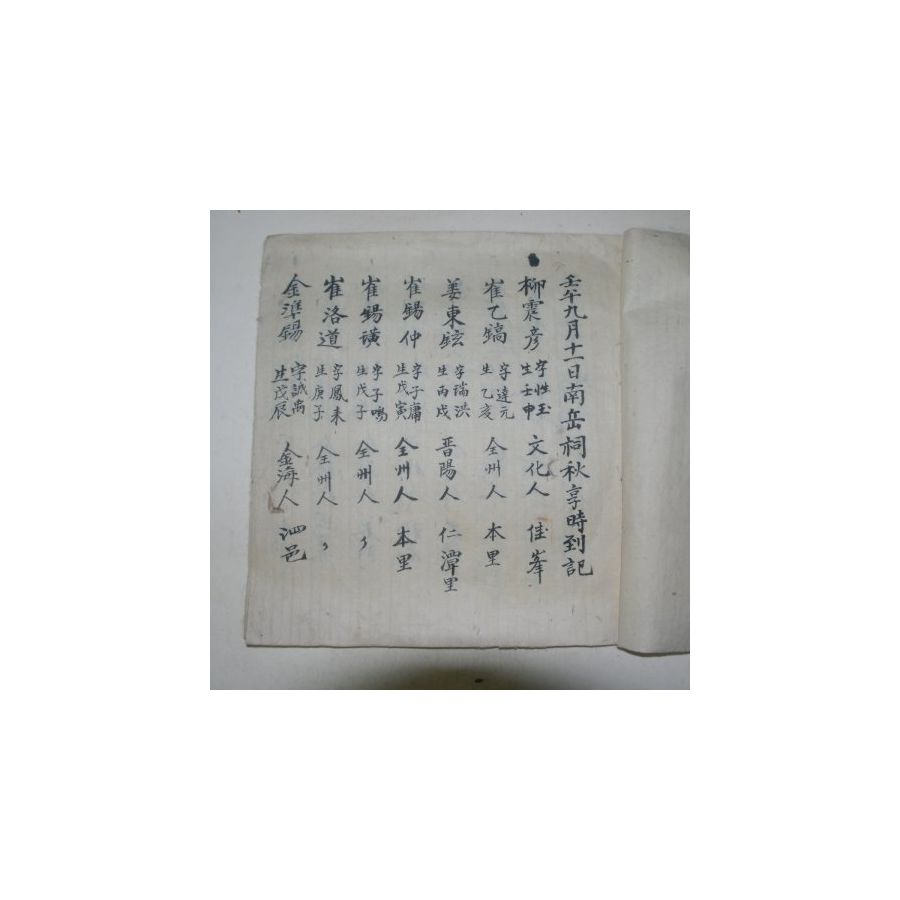 壬午九月十一日南岳祠秋享時到記
柳震彦 字性玉 生壬申 文化人 佳峯
崔乙鎬 字達元 生乙亥 全州人 本里
姜東鉉 字瑞洪 生丙戌 晋陽人 仁潭里
崔錫仲 字子庸 生戊寅 全州人 本里
崔錫璜 字子鳴 生戊子 全州人 〃
崔洛道 字鳳来 生庚子 全州人 〃
金準錫 字誠禹 生戊辰 金海人 泗邑